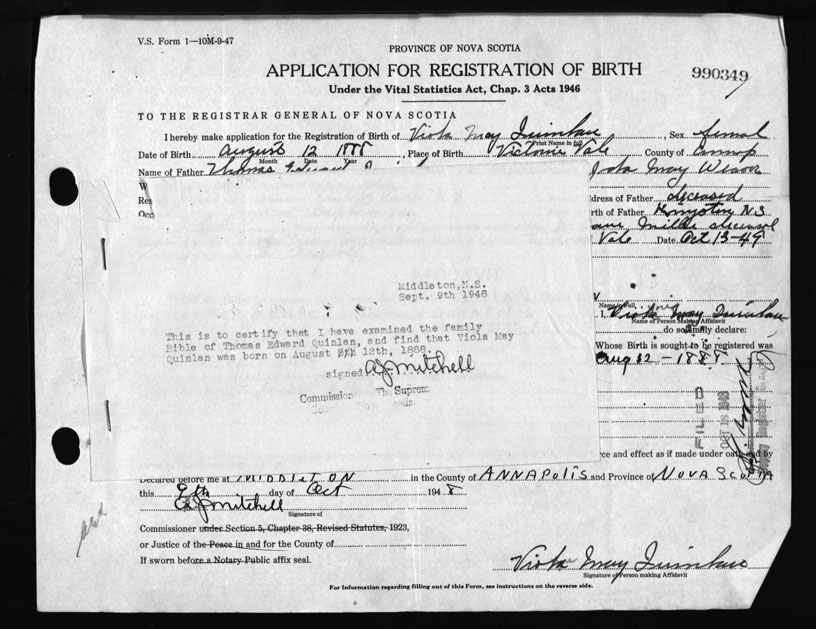 V.S. Form 1—10M-9-47
PROVINCE OF NOVA SCOTIA
APPLICATION FOR REGISTRATION OF BIRTH
990349
Under the Vital Statistics Act, Chap. 3 Acts 1946
TO THE REGISTRAR GENERAL OF NOVA SCOTIA
I hereby make application for the Registration of Birth of Viola May Quinlan, Sex
Print Name in full
Date of Birth August 12 1888, Place of Birth Victoria Vale County of
Month Date Year
Name of Father Thomas Edward May
W
Res dress of Father deceased
Occ rth of Father Kingston N.S.
deceased
Vale Date Oct 13-49
Middleton,N.S.
Sept. 9th 1948
Name in Full,
I, Viola May Quinlan
Name of Person Making Affidavit
do solemnly declare:
This is to certify that I have examined the family
Bible of Thomas Edward Quinlan, and find that Viola May
Quinlan was born on August 12th, 1888.
Whose Birth is sought to be registered was
Aug 12-1888
signed A J Mitchell
Commissioner The Suprem
FILED
OCT 18
rce and effect as if made under oath and by
Declared before me at MIDDLETON in the County of ANNAPOLIS and Province of NOVA SCOTIA
this 9th day of Oct 1948
A J Mitchell
Signature of
Commissioner under Section 5, Chapter 38, Revised Statutes, 1923,
or Justice of the Peace in and for the County of
If sworn before a Notary Public affix seal.
Viola May Quinlan
Signature of Person making Affidavit
For Information regarding filling out of this Form, see instructions on the reverse side.